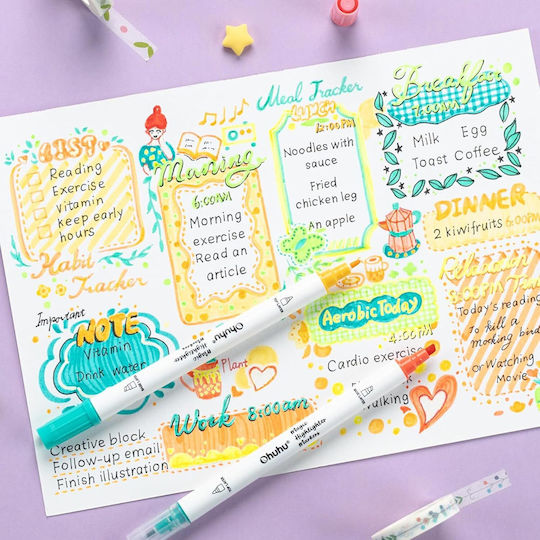 LIST
Reading
Exercise
Vitamin
keep early
hours
Habit
Tracker
Morning
6:00AM
Morning
exercise
Read an
article
Meal Tracker
LUNCH
12:00PM
Noodles with
sauce
Fried
chicken leg
An apple
Breakfast
7:00AM
Milk Egg
Toast Coffee
DINNER
2 kiwifruits 6:00PM
Relaxation
Today's reading
To kill a
mocking bird
Or Watching
Movie
Important
NOTE
Vitamin
Drink Water
Plant
Aerobic Today
4:00PM
Cardio exercise
Walking
Work 8:00am
Creative block
Follow-up email
Finish illustration
Ohuhu
Magic
Highlighter
Markers
Ohuhu
Magic
Highlighter
Markers